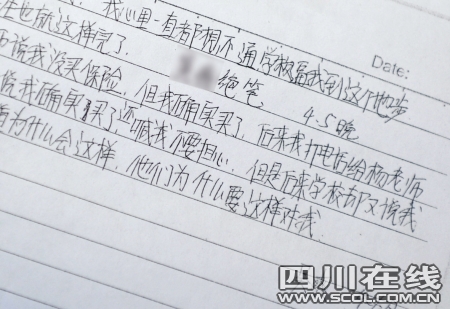 我心里一直都想不通学校逼我到这个地步
Date:
生也就这样完了.
绝笔
4.5晚
说我没买保险,但我确实买了,后来我打电话给杨老师
说我确实买了,还喊我不要担心.但是后来学校却又说我
为什么会这样,他们为什么要这样对我.
四川在线
WWW.SCOL.COM.CN